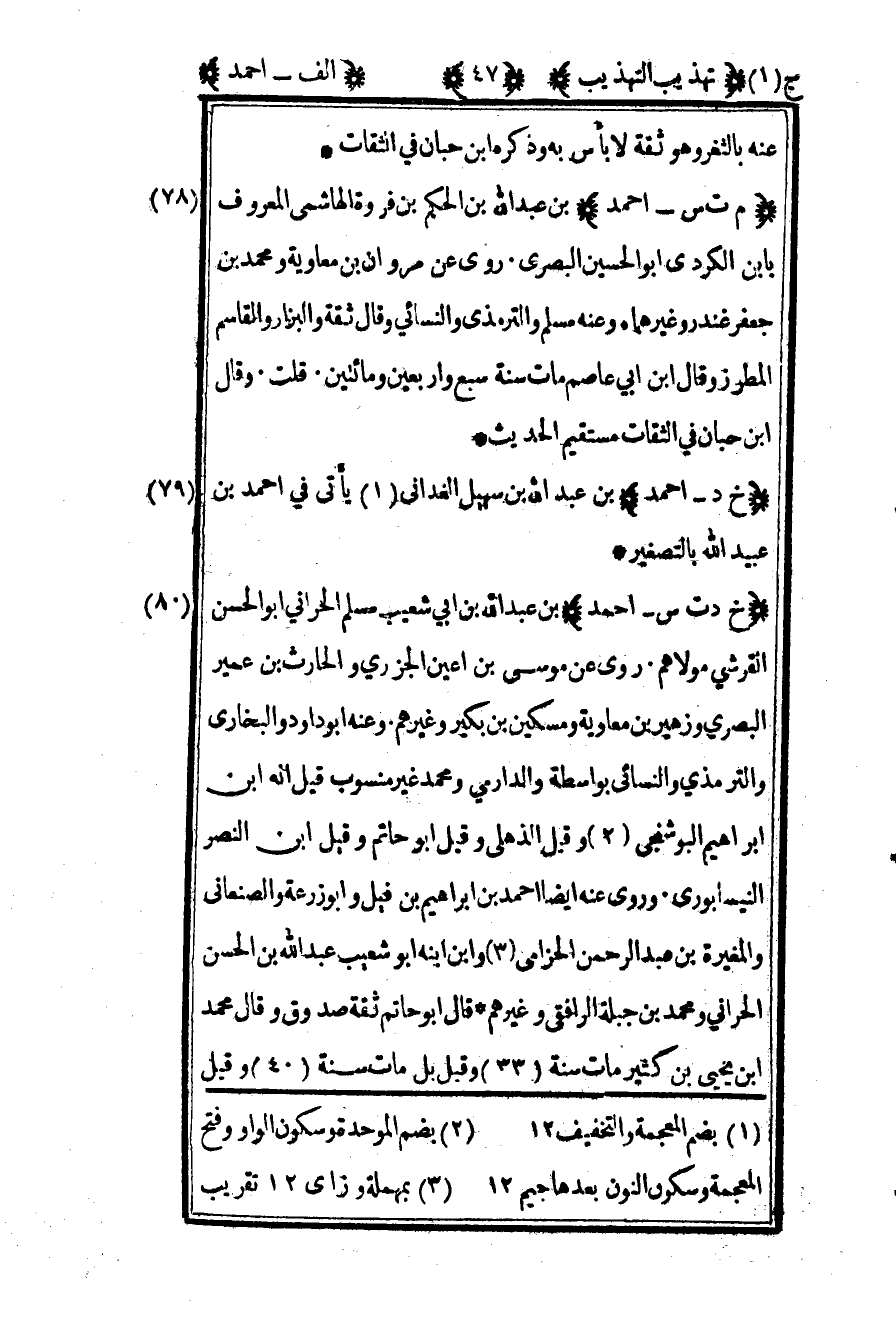 ج(١) ﴿ تهذيب التهذيب ﴾ ﴿ ٤٧ ﴾ ﴿ الف ـ احمد ﴾
عنه بالثغر وهو ثقة لا بأس به وذكره ابن حبان في الثقات *
﴿ م ت س ـ احمد ﴾ بن عبد الله بن الحكم بن فروة الهاشمى المعروف (٧٨)
بابن الكردى ابو الحسين البصرى · روى عن مروان بن معاوية و محمد بن
جعفر غندر وغيرهما · وعنه مسلم والترمذى والنسائي وقال ثقة والبزار والقاسم
المطرز وقال ابن ابي عاصم مات سنة سبع واربعين ومائتين · قلت · وقال
ابن حبان في الثقات مستقيم الحديث *
﴿ خ د ـ احمد ﴾ بن عبد الله بن سهيل الغدانى (١) يأتى في احمد بن (٧٩)
عبيد الله بالتصغير *
﴿ خ د ت س ـ احمد ﴾ بن عبد الله بن ابي شعيب مسلم الحراني ابو الحسن (٨٠)
القرشي مولاهم · روى عن موسى بن اعين الجزري و الحارث بن عمير
البصري وزهير بن معاوية ومسكين بن بكير وغيرهم · وعنه ابو داود والبخارى
والترمذي والنسائى بواسطة والدارمي ومحمد غير منسوب قيل انه ابن
ابراهيم البوشنجي (٢) و قيل الذهلى و قيل ابو حاتم و قيل ابن النصر
النيسابورى · وروى عنه ايضا احمد بن ابراهيم بن فيل و ابو زرعة والصنعانى
والمغيرة بن عبد الرحمن الحزامى (٣) وابن ابنه ابو شعيب عبد الله بن الحسن
الحراني ومحمد بن جبلة الرافقى و غيرهم * قال ابو حاتم ثقة صدوق و قال محمد
ابن يحيى بن كثير مات سنة (٣٣) وقيل بل مات سنة (٤٠) و قيل
(١) بضم المعجمة والتخفيف ١٢ (٢) بضم الموحدة وسكون الواو وفتح
المعجمة وسكون النون بعدها جيم ١٢ (٣) بمهملة و زاى ١٢ تقريب